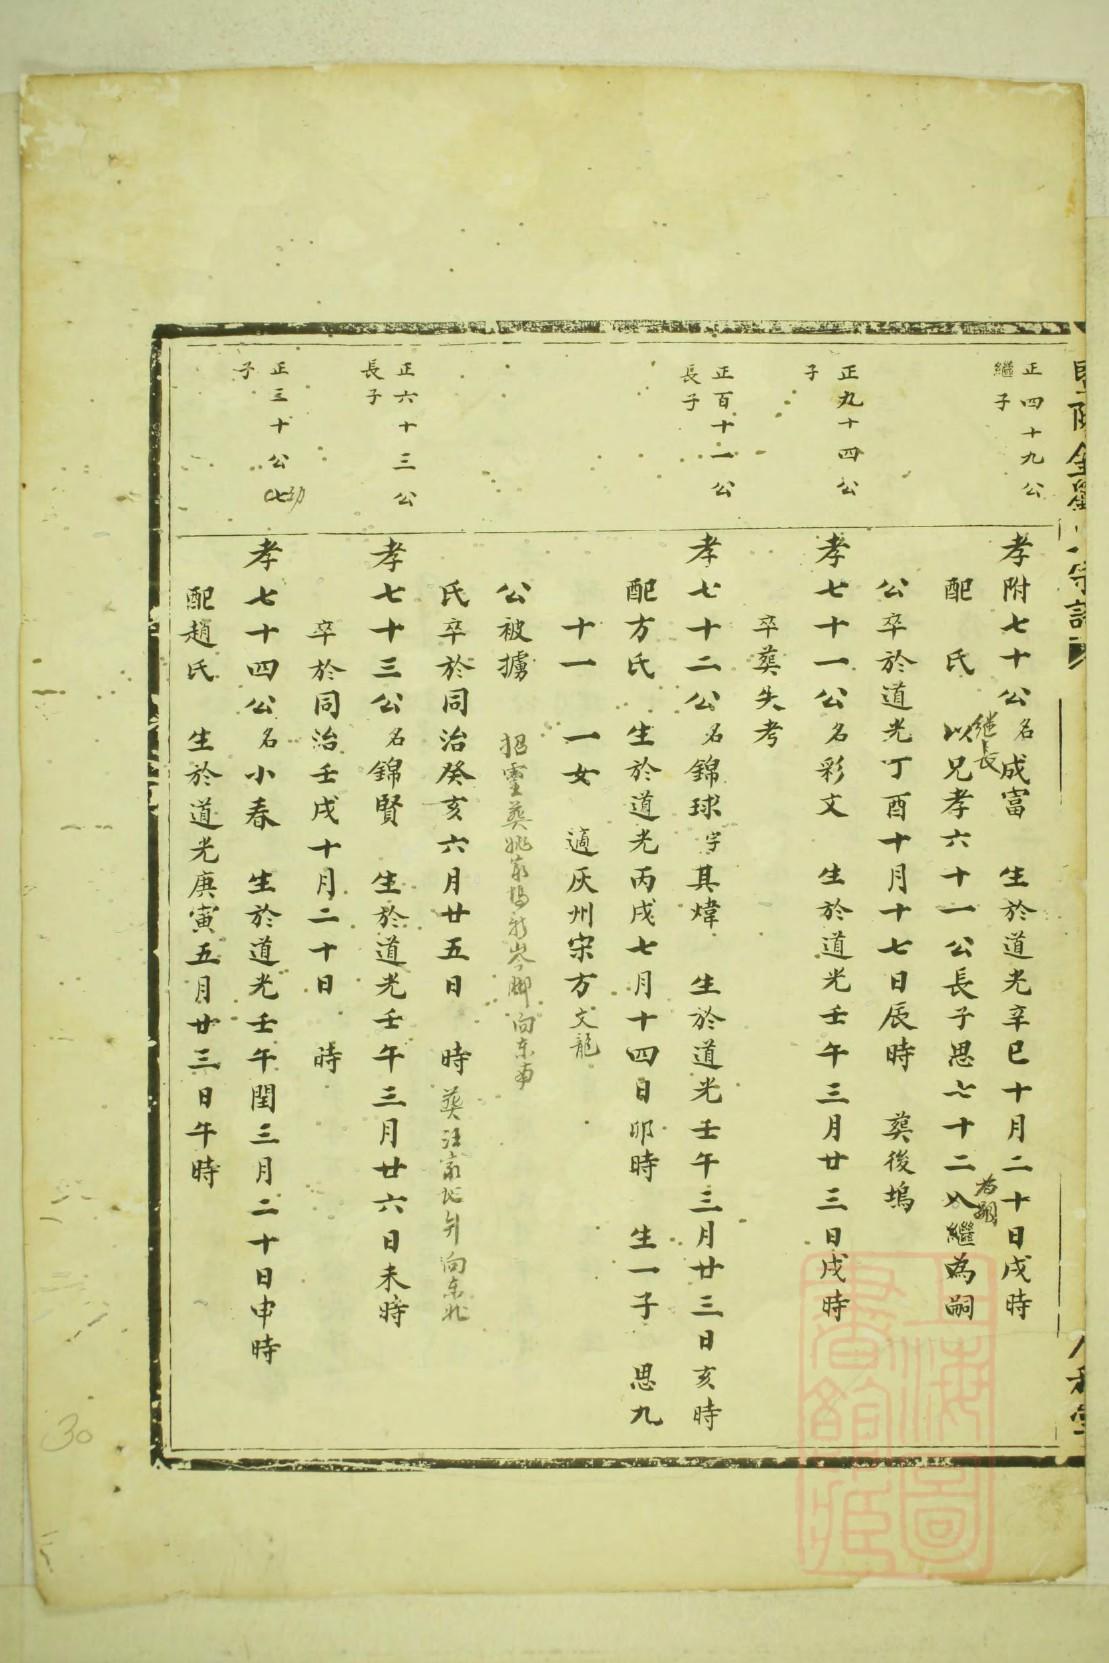 正四十九公
繼子
孝附七十公名成富 生於道光辛巳十月二十日戌時
配 氏 以兄孝六十一公長子思七十二入繼為嗣
繼長
為嗣
公卒於道光丁酉十月十七日辰時 葬後塢
正九十四公
子
孝七十一公名彩文 生於道光壬午三月廿三日戌時
卒葬失考
正百十一公
長子
孝七十二公名錦球字其煒 生於道光壬午三月廿三日亥時
配方氏 生於道光丙戌七月十四日卯時 生一子 思九
十一 一女 適灰州宋方文龍
公被擄 招靈葬姚家塢 脚向東南
氏卒於同治癸亥六月廿五日 時 葬汪家 向東北
正六十三公
長子
孝七十三公名錦賢 生於道光壬午三月廿六日未時
卒於同治壬戌十月二十日 時
正三十公
子
孝七十四公名小春 生於道光壬午閏三月二十日申時
配趙氏 生於道光庚寅五月廿三日午時
30
上海圖書館藏